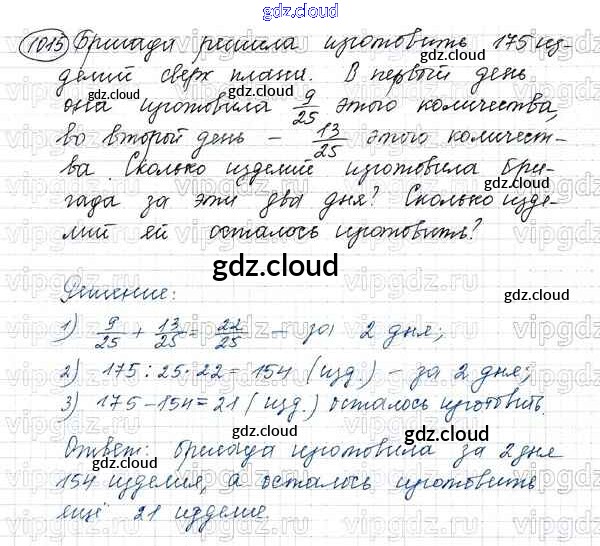 gdz.cloud
1015 Бригада решила изготовить 175 из-
делий сверх плана. В первый день
она изготовила 9/25 этого количества,
во второй день – 13/25 этого количест-
ва. Сколько изделий изготовила бри-
гада за эти два дня? Сколько изде-
лий ей осталось изготовить?
gdz.cloud
Решение:
1) 9/25 + 13/25 = 22/25 – за 2 дня;
2) 175 : 25 · 22 = 154 (изд.) – за 2 дня;
3) 175 – 154 = 21 (изд.) осталось изготовить.
Ответ: бригада изготовила за 2 дня
154 изделия, а осталось изготовить
ещё 21 изделие.